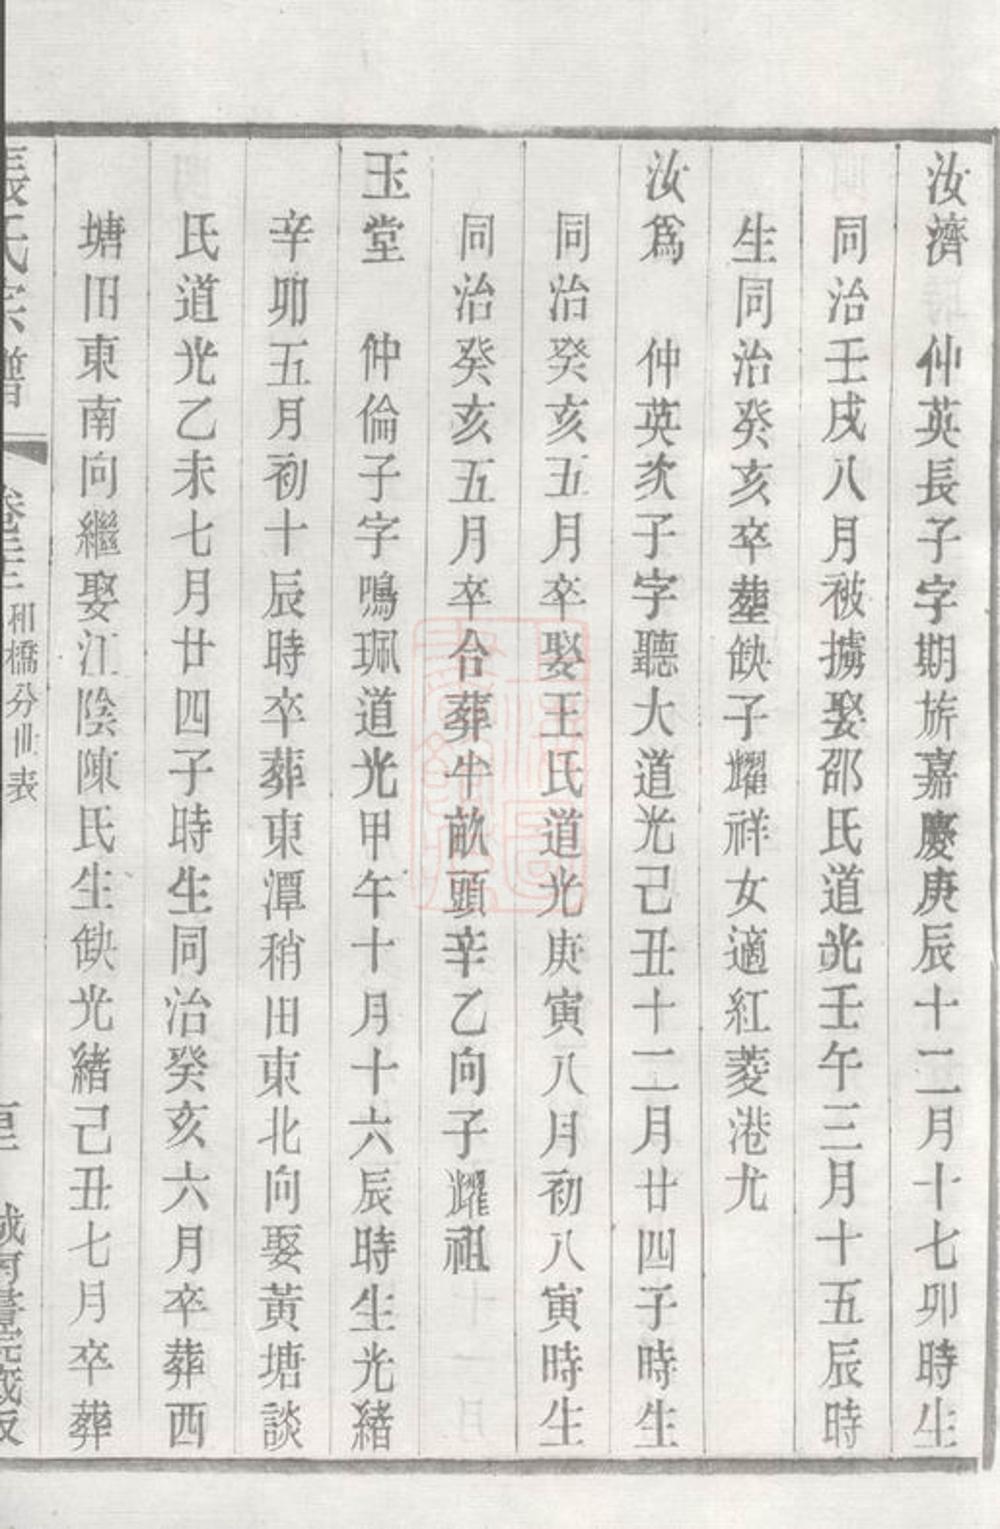 汝濟　仲英長子字期旂嘉慶庚辰十二月十七卯時生
同治壬戌八月被擄娶邵氏道光壬午三月十五辰時
生同治癸亥卒塟缺子耀祥女適紅菱港尤
汝爲　仲英次子字聽大道光己丑十二月廿四子時生
同治癸亥五月卒娶王氏道光庚寅八月初八寅時生
同治癸亥五月卒合葬半畝頭辛乙向子耀祖
玉堂　仲倫子字鳴珮道光甲午十月十六辰時生光緒
辛卯五月初十辰時卒葬東潭稍田東北向娶黃塘談
氏道光乙未七月廿四子時生同治癸亥六月卒葬西
塘田東南向繼娶江陰陳氏生缺光緒己丑七月卒葬
張氏宗譜　卷三　和橋分世表